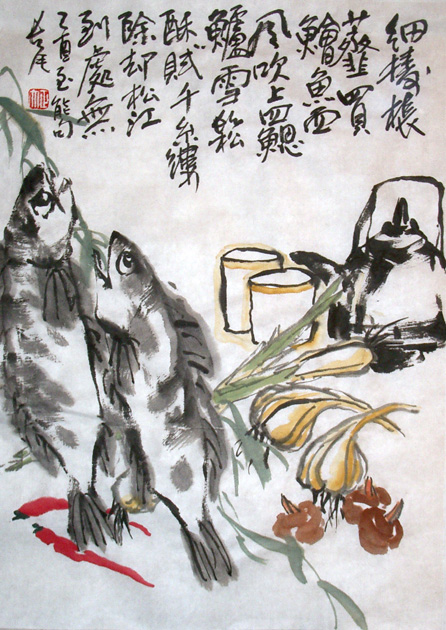 细擣棖
虀買
鱠魚西
风吹上四鰓
鱸雪鬆
酥膩千糸縷
除却松江
到處無
乙酉至能句